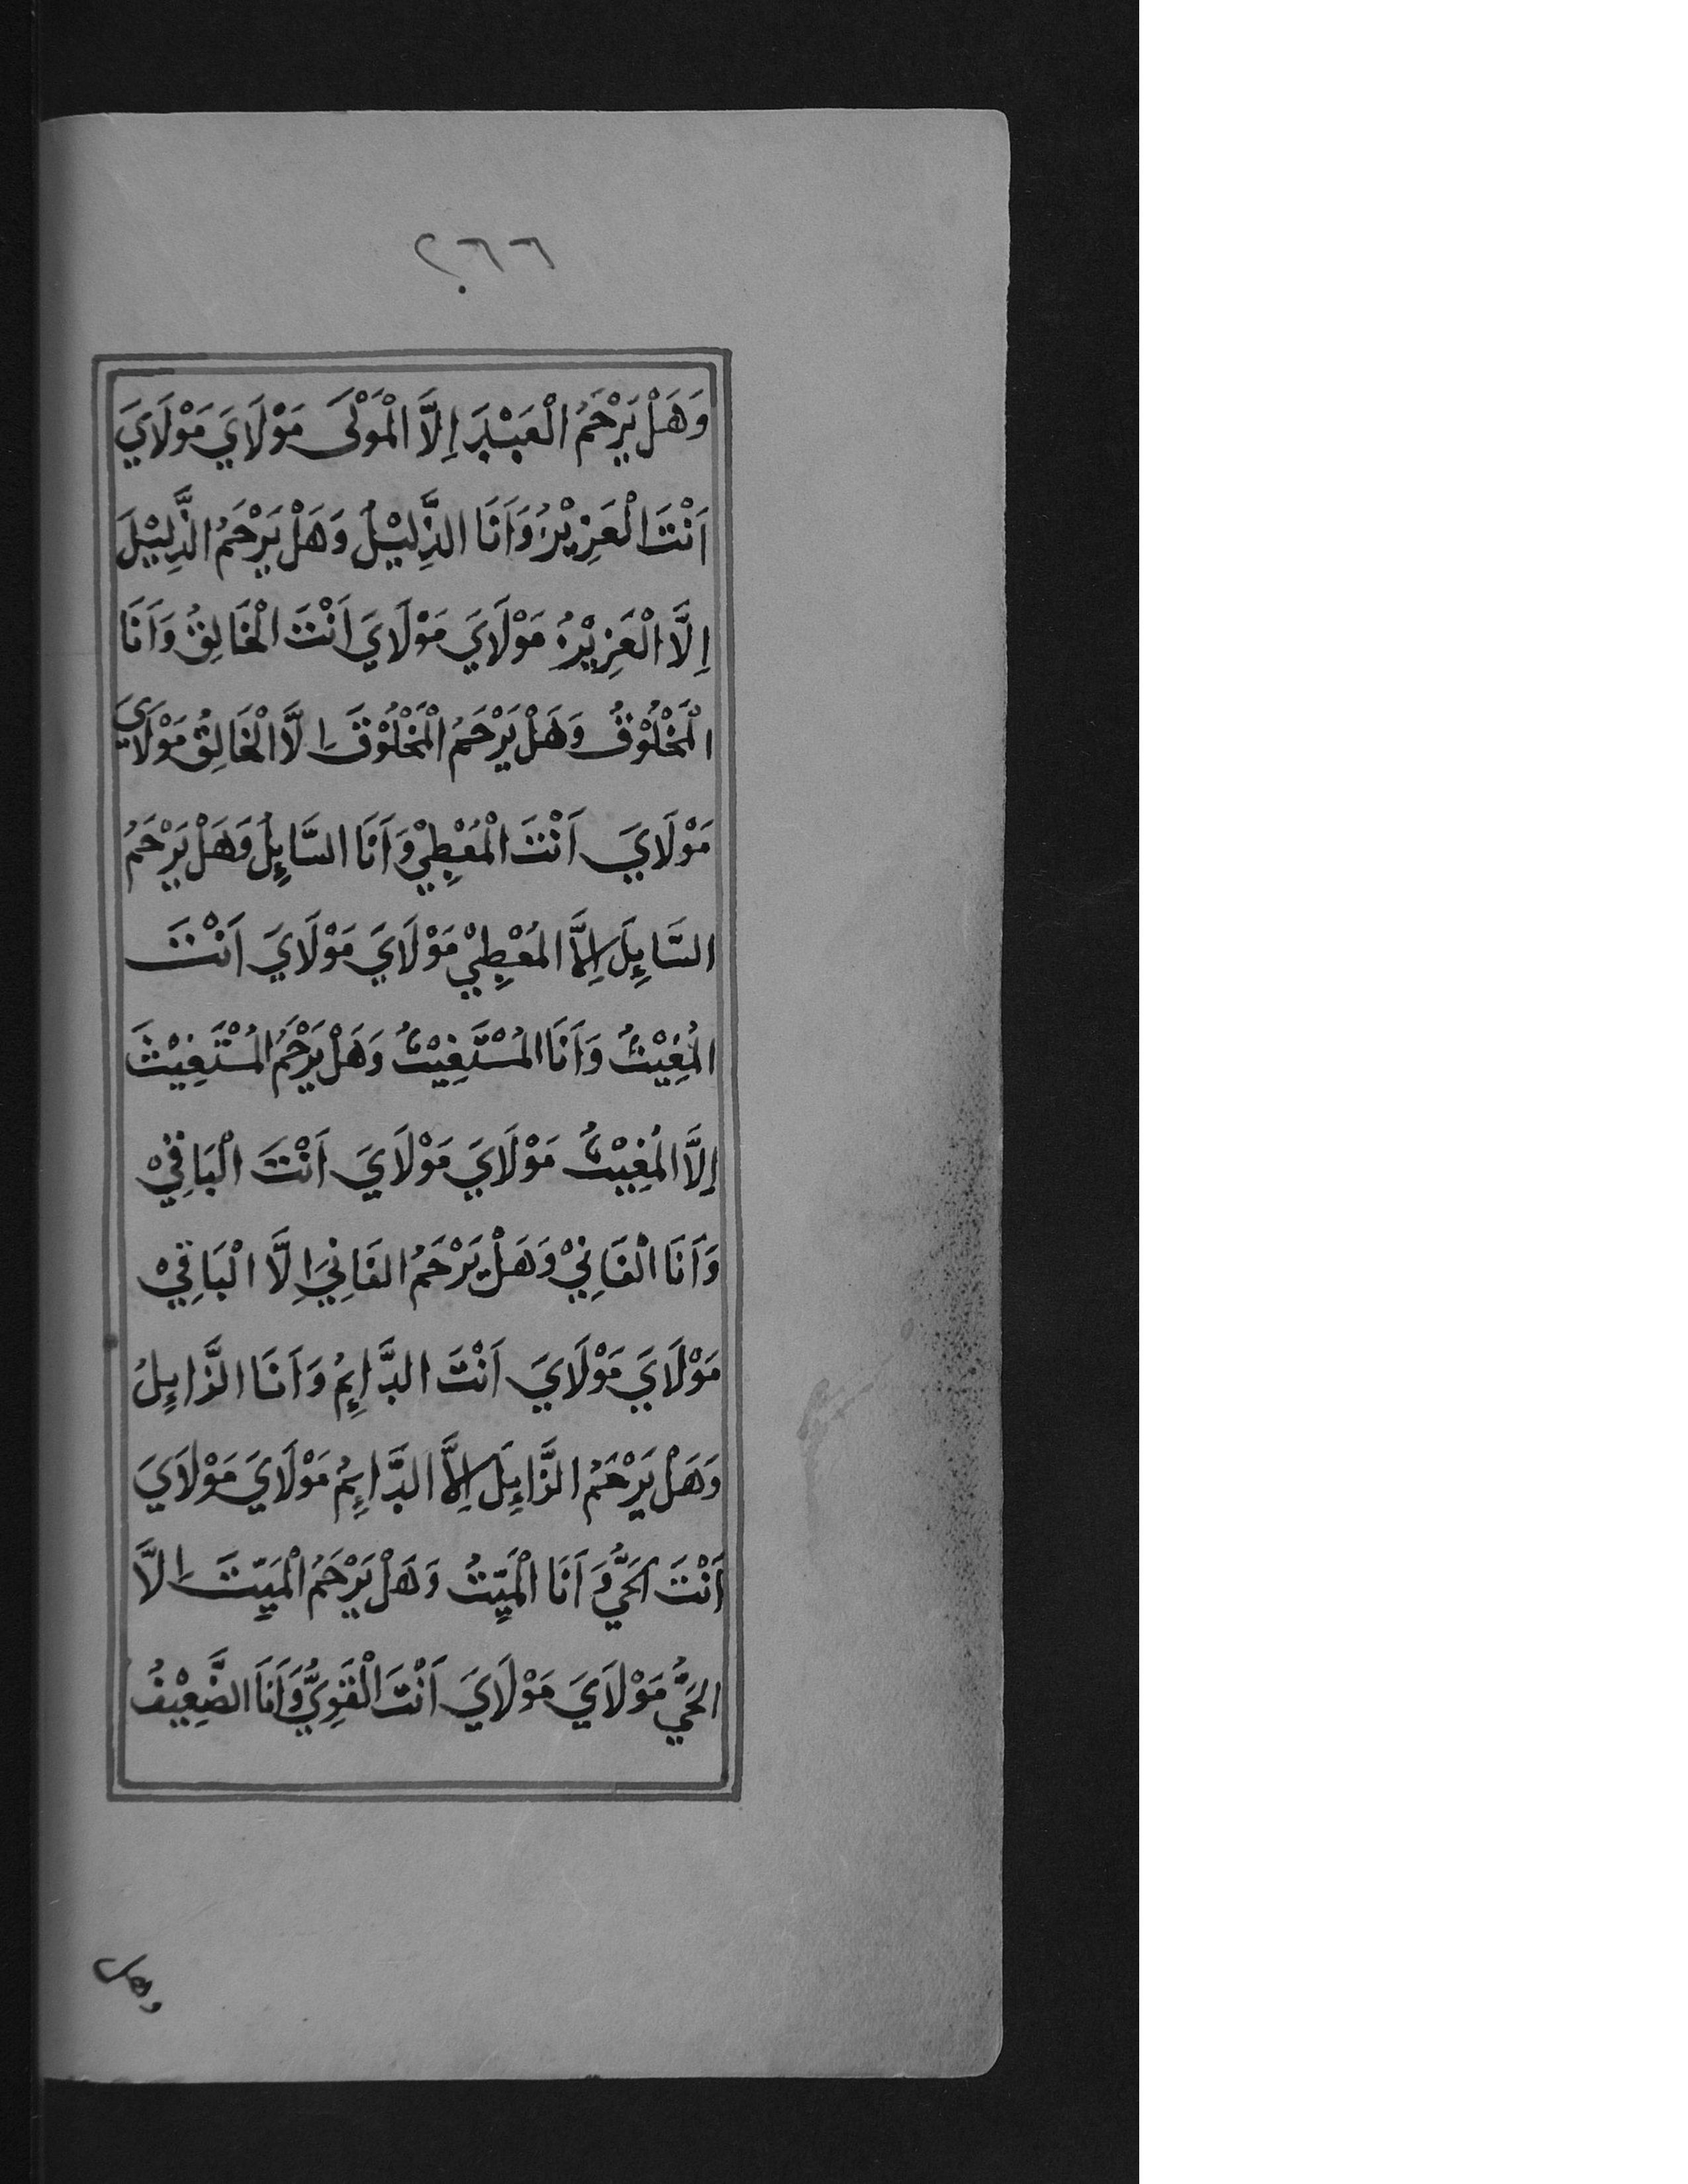 ٢٦٦
وَهَلْ يَرْحَمُ الْعَبْدَ اِلَّا الْمَوْلَى مَوْلَايَ مَوْلَايَ
اَنْتَ الْعَزِيْزُ وَاَنَا الذَّلِيْلُ وَهَلْ يَرْحَمُ الذَّلِيْلَ
اِلَّا الْعَزِيْزُ مَوْلَايَ مَوْلَايَ اَنْتَ الْخَالِقُ وَاَنَا
الْمَخْلُوْقُ وَهَلْ يَرْحَمُ الْمَخْلُوْقَ اِلَّا الْخَالِقُ مَوْلَايَ
مَوْلَايَ اَنْتَ الْمُعْطِيْ وَاَنَا السَّايِلُ وَهَلْ يَرْحَمُ
السَّايِلَ اِلَّا الْمُعْطِيْ مَوْلَايَ مَوْلَايَ اَنْتَ
الْمُغِيْثُ وَاَنَا الْمُسْتَغِيْثُ وَهَلْ يَرْحَمُ الْمُسْتَغِيْثَ
اِلَّا الْمُغِيْثُ مَوْلَايَ مَوْلَايَ اَنْتَ الْبَاقِيْ
وَاَنَا الْفَانِيْ وَهَلْ يَرْحَمُ الْفَانِيَ اِلَّا الْبَاقِيْ
مَوْلَايَ مَوْلَايَ اَنْتَ الدَّايِمُ وَاَنَا الزَّايِلُ
وَهَلْ يَرْحَمُ الزَّايِلَ اِلَّا الدَّايِمُ مَوْلَايَ مَوْلَايَ
اَنْتَ الْحَيُّ وَاَنَا الْمَيِّتُ وَهَلْ يَرْحَمُ الْمَيِّتَ اِلَّا
الْحَيُّ مَوْلَايَ مَوْلَايَ اَنْتَ الْقَوِيُّ وَاَنَا الضَّعِيْفُ
وهل